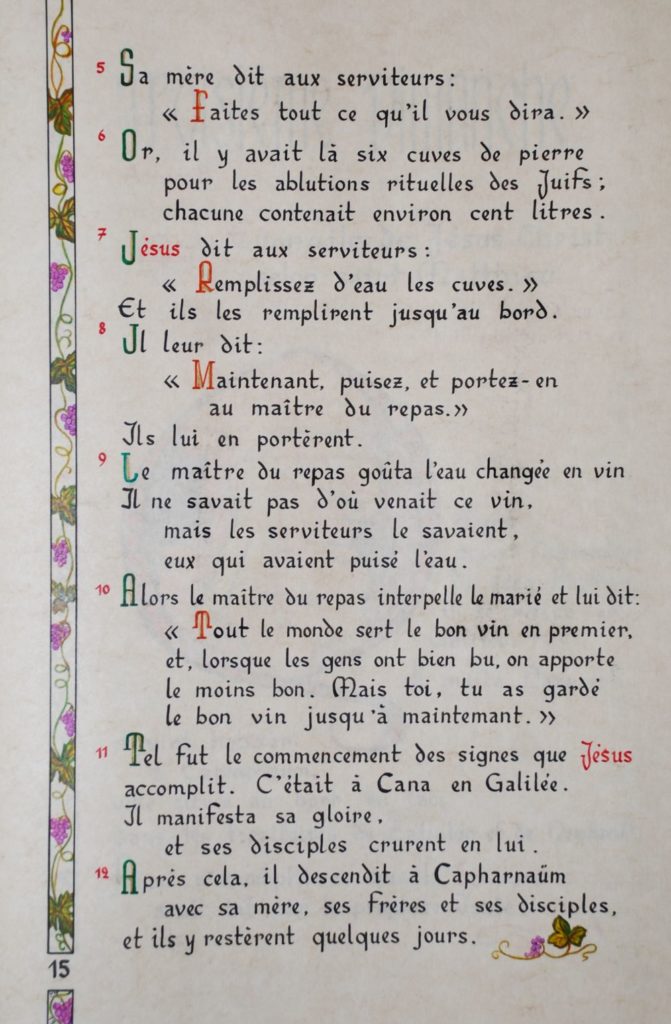 5 Sa mère dit aux serviteurs:
« Faites tout ce qu'il vous dira. »
6 Or, il y avait là six cuves de pierre
pour les ablutions rituelles des Juifs;
chacune contenait environ cent litres.
7 Jésus dit aux serviteurs:
« Remplissez d'eau les cuves. »
Et ils les remplirent jusqu'au bord.
8 Il leur dit:
« Maintenant, puisez, et portez-en
au maître du repas.»
Ils lui en portèrent.
9 Le maître du repas goûta l'eau changée en vin
Il ne savait pas d'où venait ce vin,
mais les serviteurs le savaient,
eux qui avaient puisé l'eau.
10 Alors le maître du repas interpelle le marié et lui dit:
« Tout le monde sert le bon vin en premier,
et, lorsque les gens ont bien bu, on apporte
le moins bon. Mais toi, tu as gardé
le bon vin jusqu'à maintemant. »
11 Tel fut le commencement des signes que Jésus
accomplit. C'était à Cana en Galilée.
Il manifesta sa gloire,
et ses disciples crurent en lui.
12 Après cela, il descendit à Capharnaüm
avec sa mère, ses frères et ses disciples,
et ils y restèrent quelques jours.
15